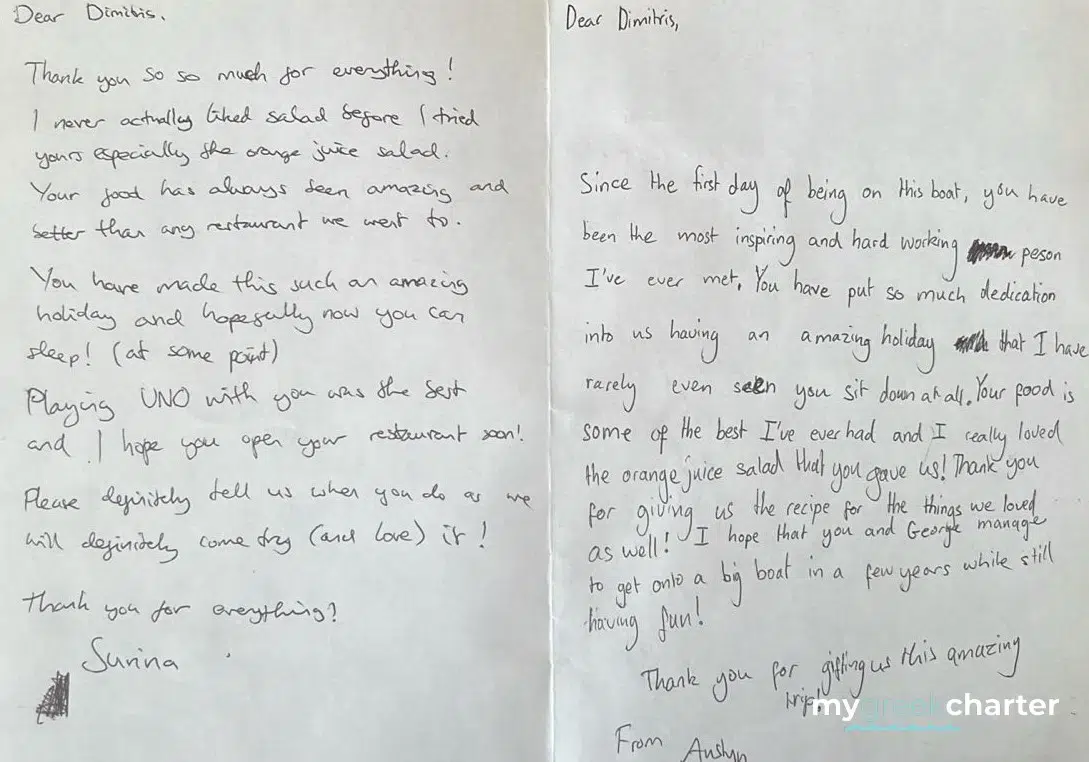 Dear Dimitris.
Thank you so so much for everything!
I never actually liked salad before I tried
yours especially the orange juice salad.
Your food has always been amazing and
better than any restaurant we went to.
You have made this such an amazing
holiday and hopefully now you can
sleep! (at some point)
Playing UNO with you was the best
and I hope you open your restaurant soon!
Please definitely tell us when you do as we
will definitely come try (and love) it!
Thank you for everything!
Surina
Dear Dimitris,
Since the first day of being on this boat, you have
been the most inspiring and hard working peson
I've ever met. You have put so much dedication
into us having an amazing holiday that I have
rarely even seen you sit down at all. Your food is
some of the best I've ever had and I really loved
the orange juice salad that you gave us! Thank you
for giving us the recipe for the things we loved
as well! I hope that you and George manage
to get onto a big boat in a few years while still
having fun!
Thank you for gifting us this amazing
trip!
From
mygreekcharter